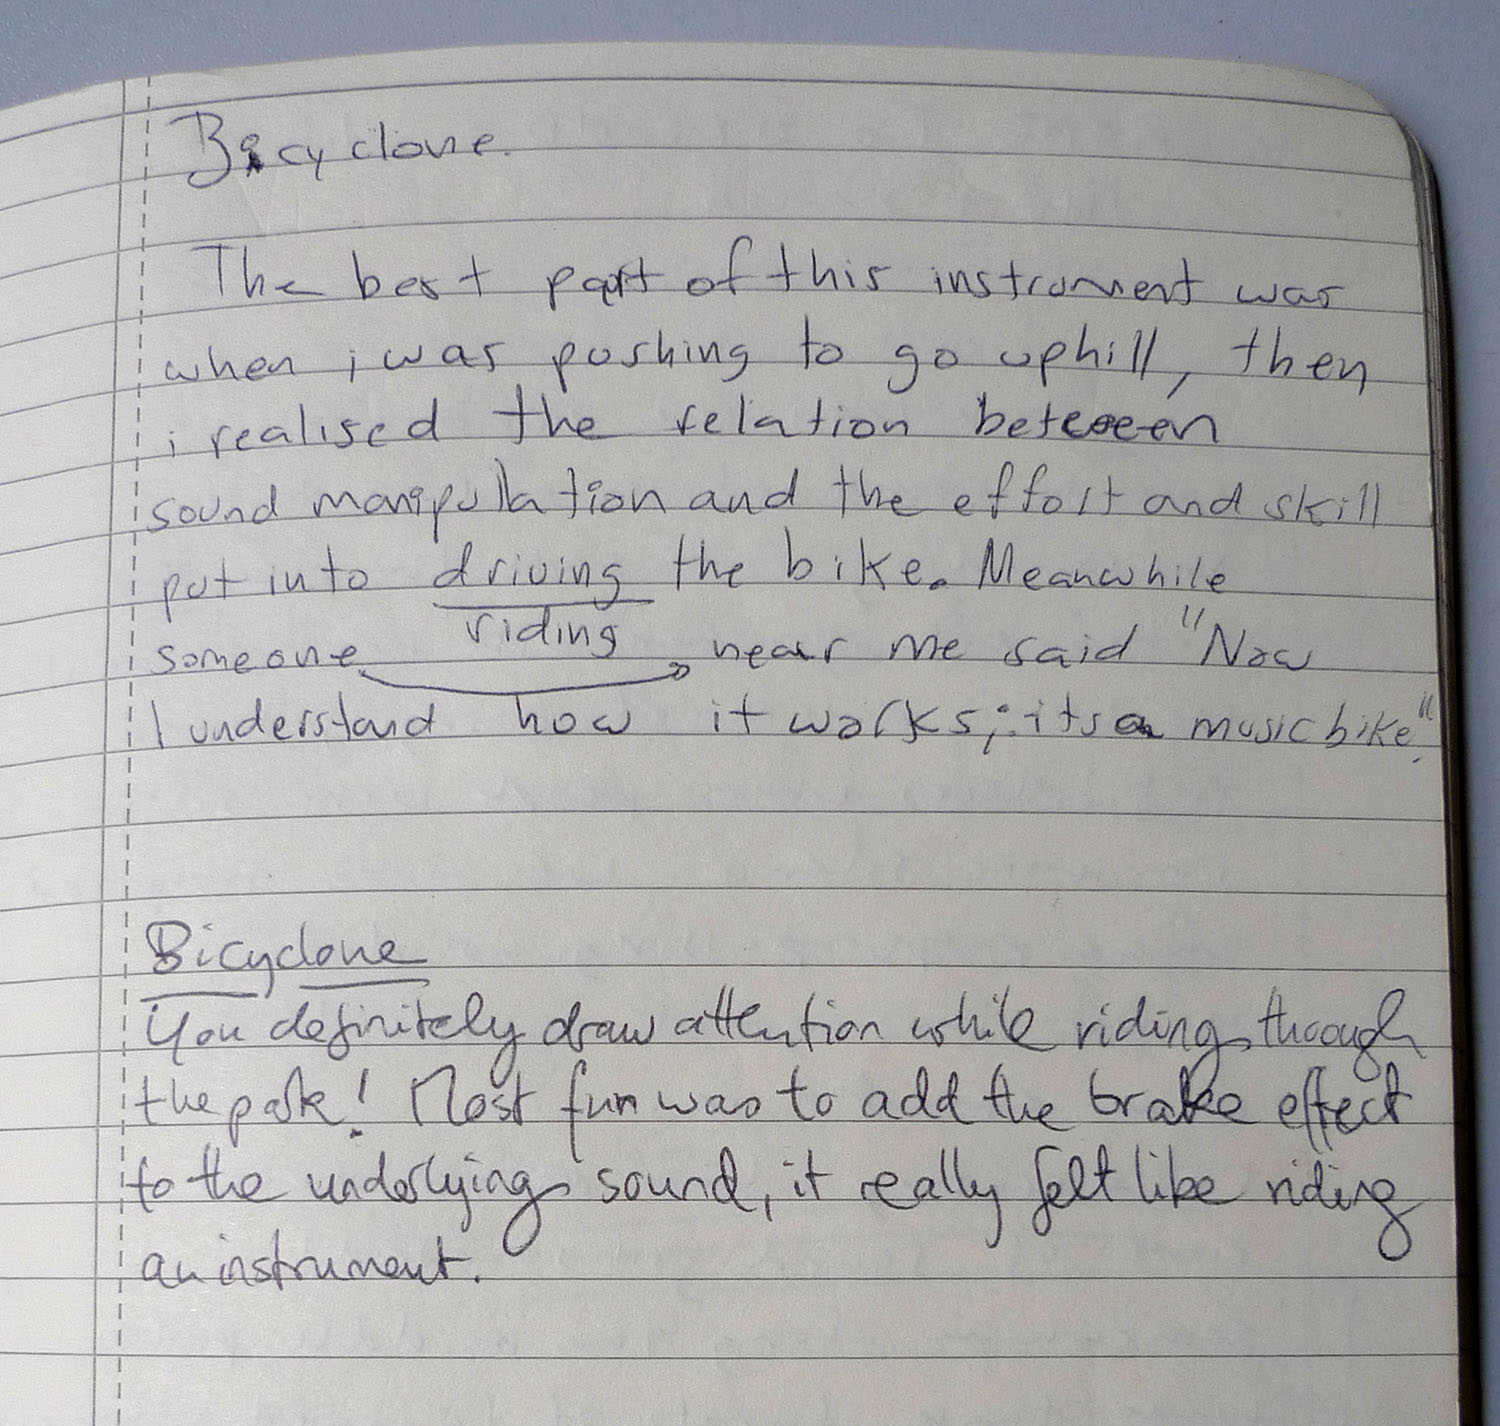 Bicyclone.
The best part of this instrument was
when i was pushing to go uphill, then
i realised the relation between
sound manipullation and the effort and skill
put into driving the bike. Meanwhile
riding
someone near me said "Now
I understand how it works; its a music bike".
Bicyclone
You definitely draw attention while riding through
the park! Most fun was to add the brake effect
to the underlying sound, it really felt like riding
an instrument.